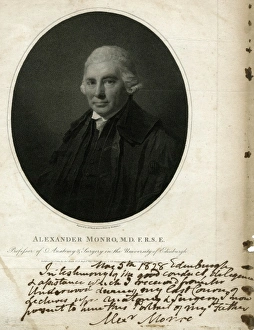 ALEXANDER MONRO, M.D. F.R.S.E.
Professor of Anatomy & Surgery in the University of Edinburgh.
Nov 5th 1828 Edinburgh
In testimony of his good conduct & of
assistance which I received from Mr
during my last Course of
Lectures upon Anatomy & Surgery I now
present to him this Portrait of my Father
Alexr Monro